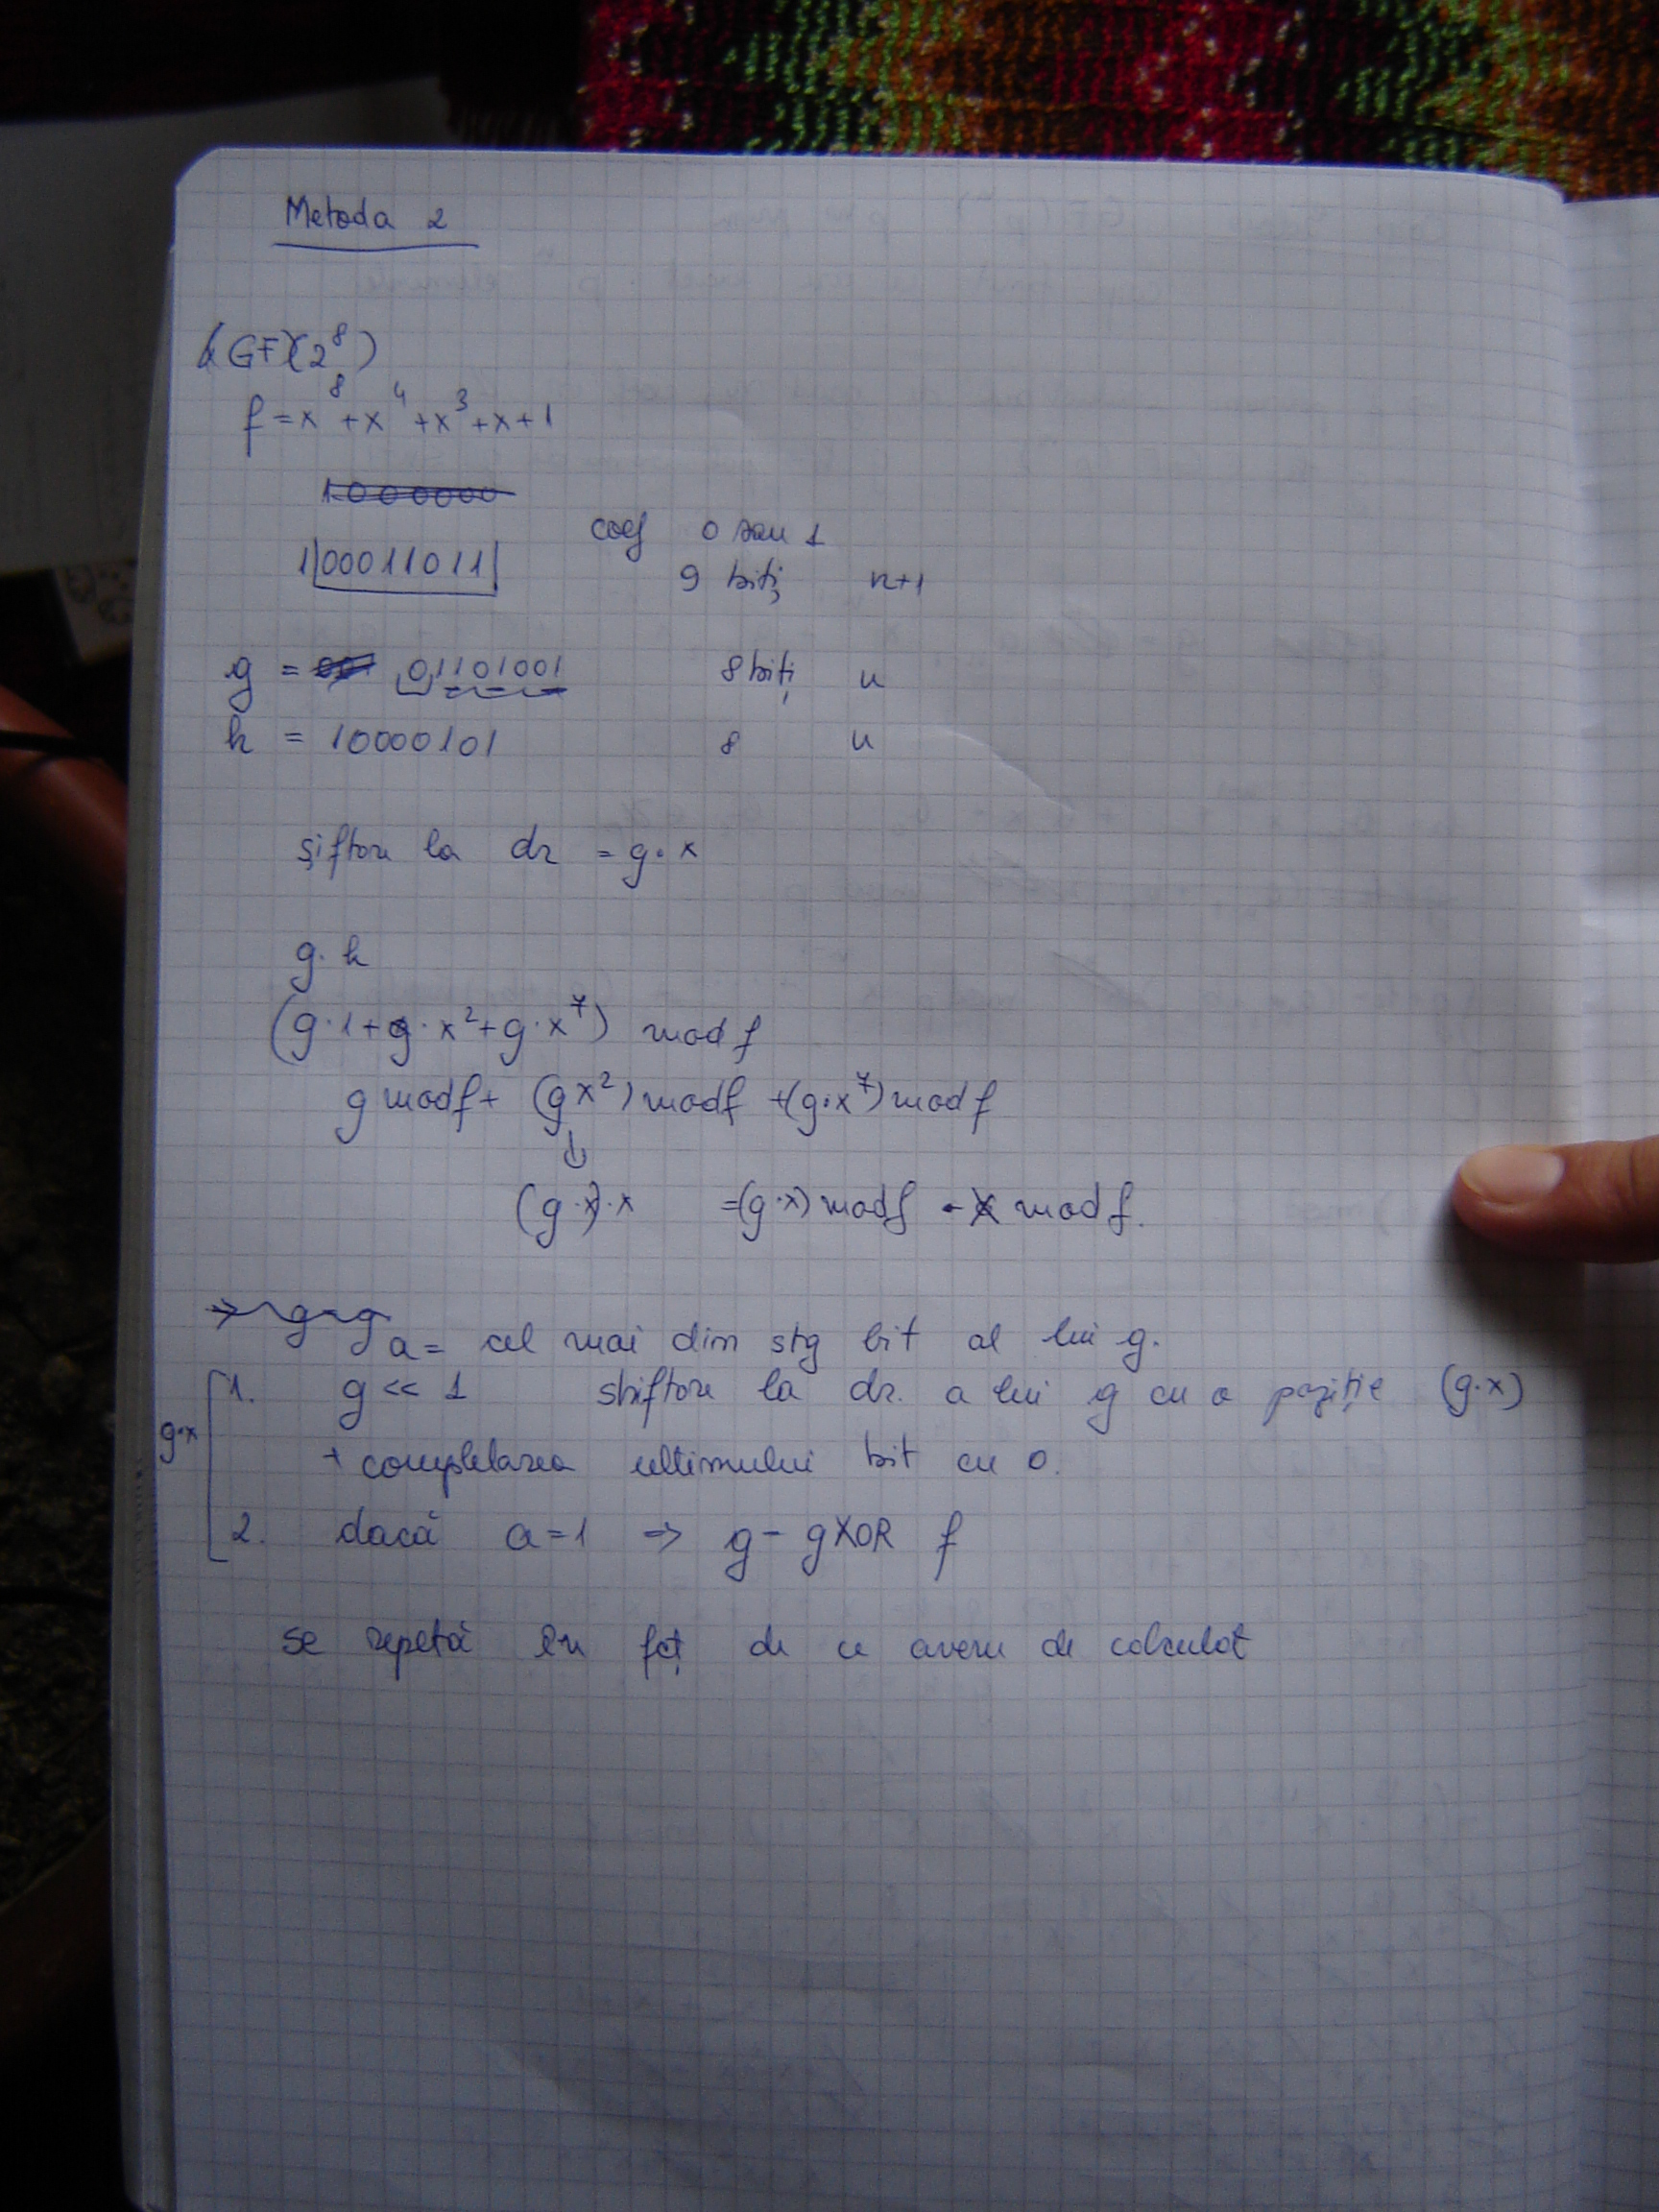 Metoda 2
(GF)(2^8)
f = x^8 + x^4 + x^3 + x + 1
1|00011011| coef 0 sau 1
9 biți n+1
g = 01101001 8 biți n
h = 10000101 8 n
șiftare la dr = g·x
g·h
(g·1 + g·x^2 + g·x^7) mod f
g mod f + (gx^2) mod f + (g·x^7) mod f
(g·x)·x = (g·x) mod f · x mod f.
a = cel mai din stg bit al lui g.
1. g << 1 shiftare la dr. a lui g cu o poziție (g·x)
g·x
+ completarea ultimului bit cu 0.
2. dacă a=1 ⇒ g = g XOR f
se repetă în fcț de ce avem de calculat